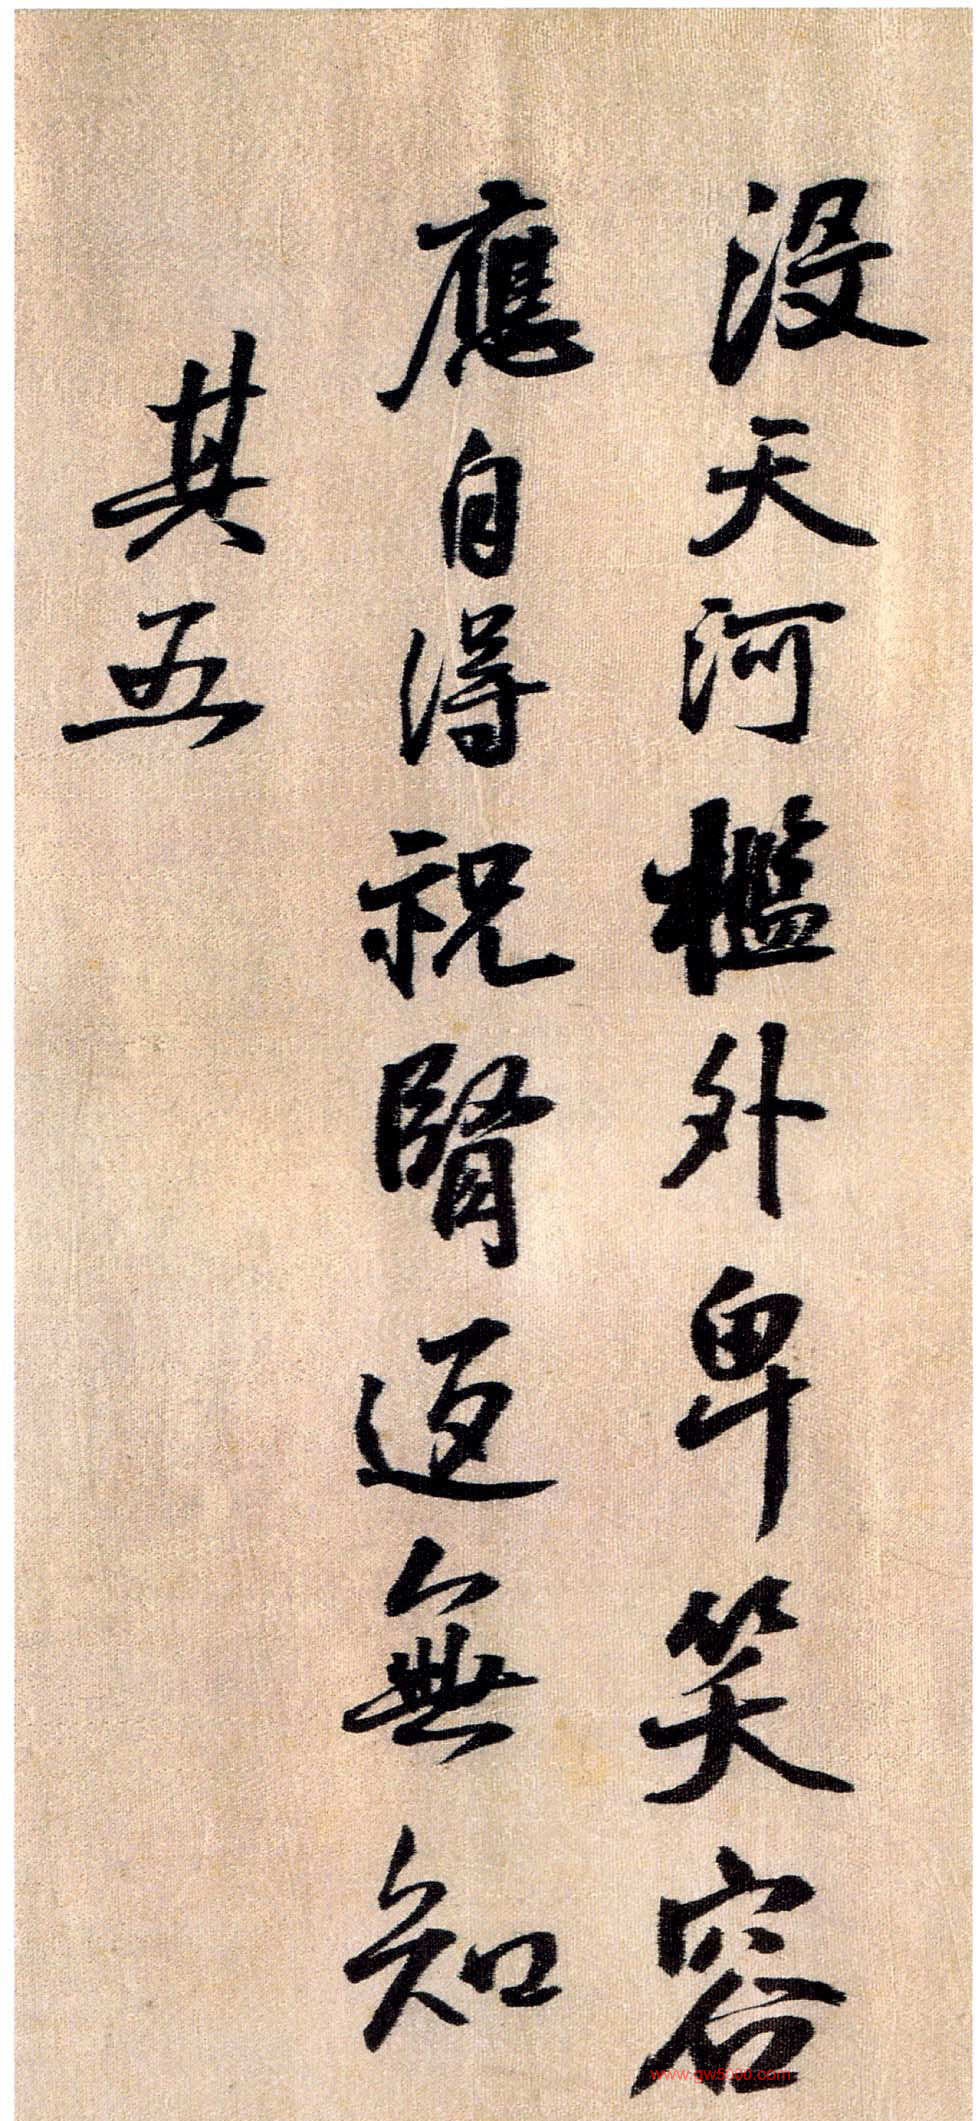 没天河檻外卑笑容
應自得祝賢迺無知
其五
www.gw5000.com